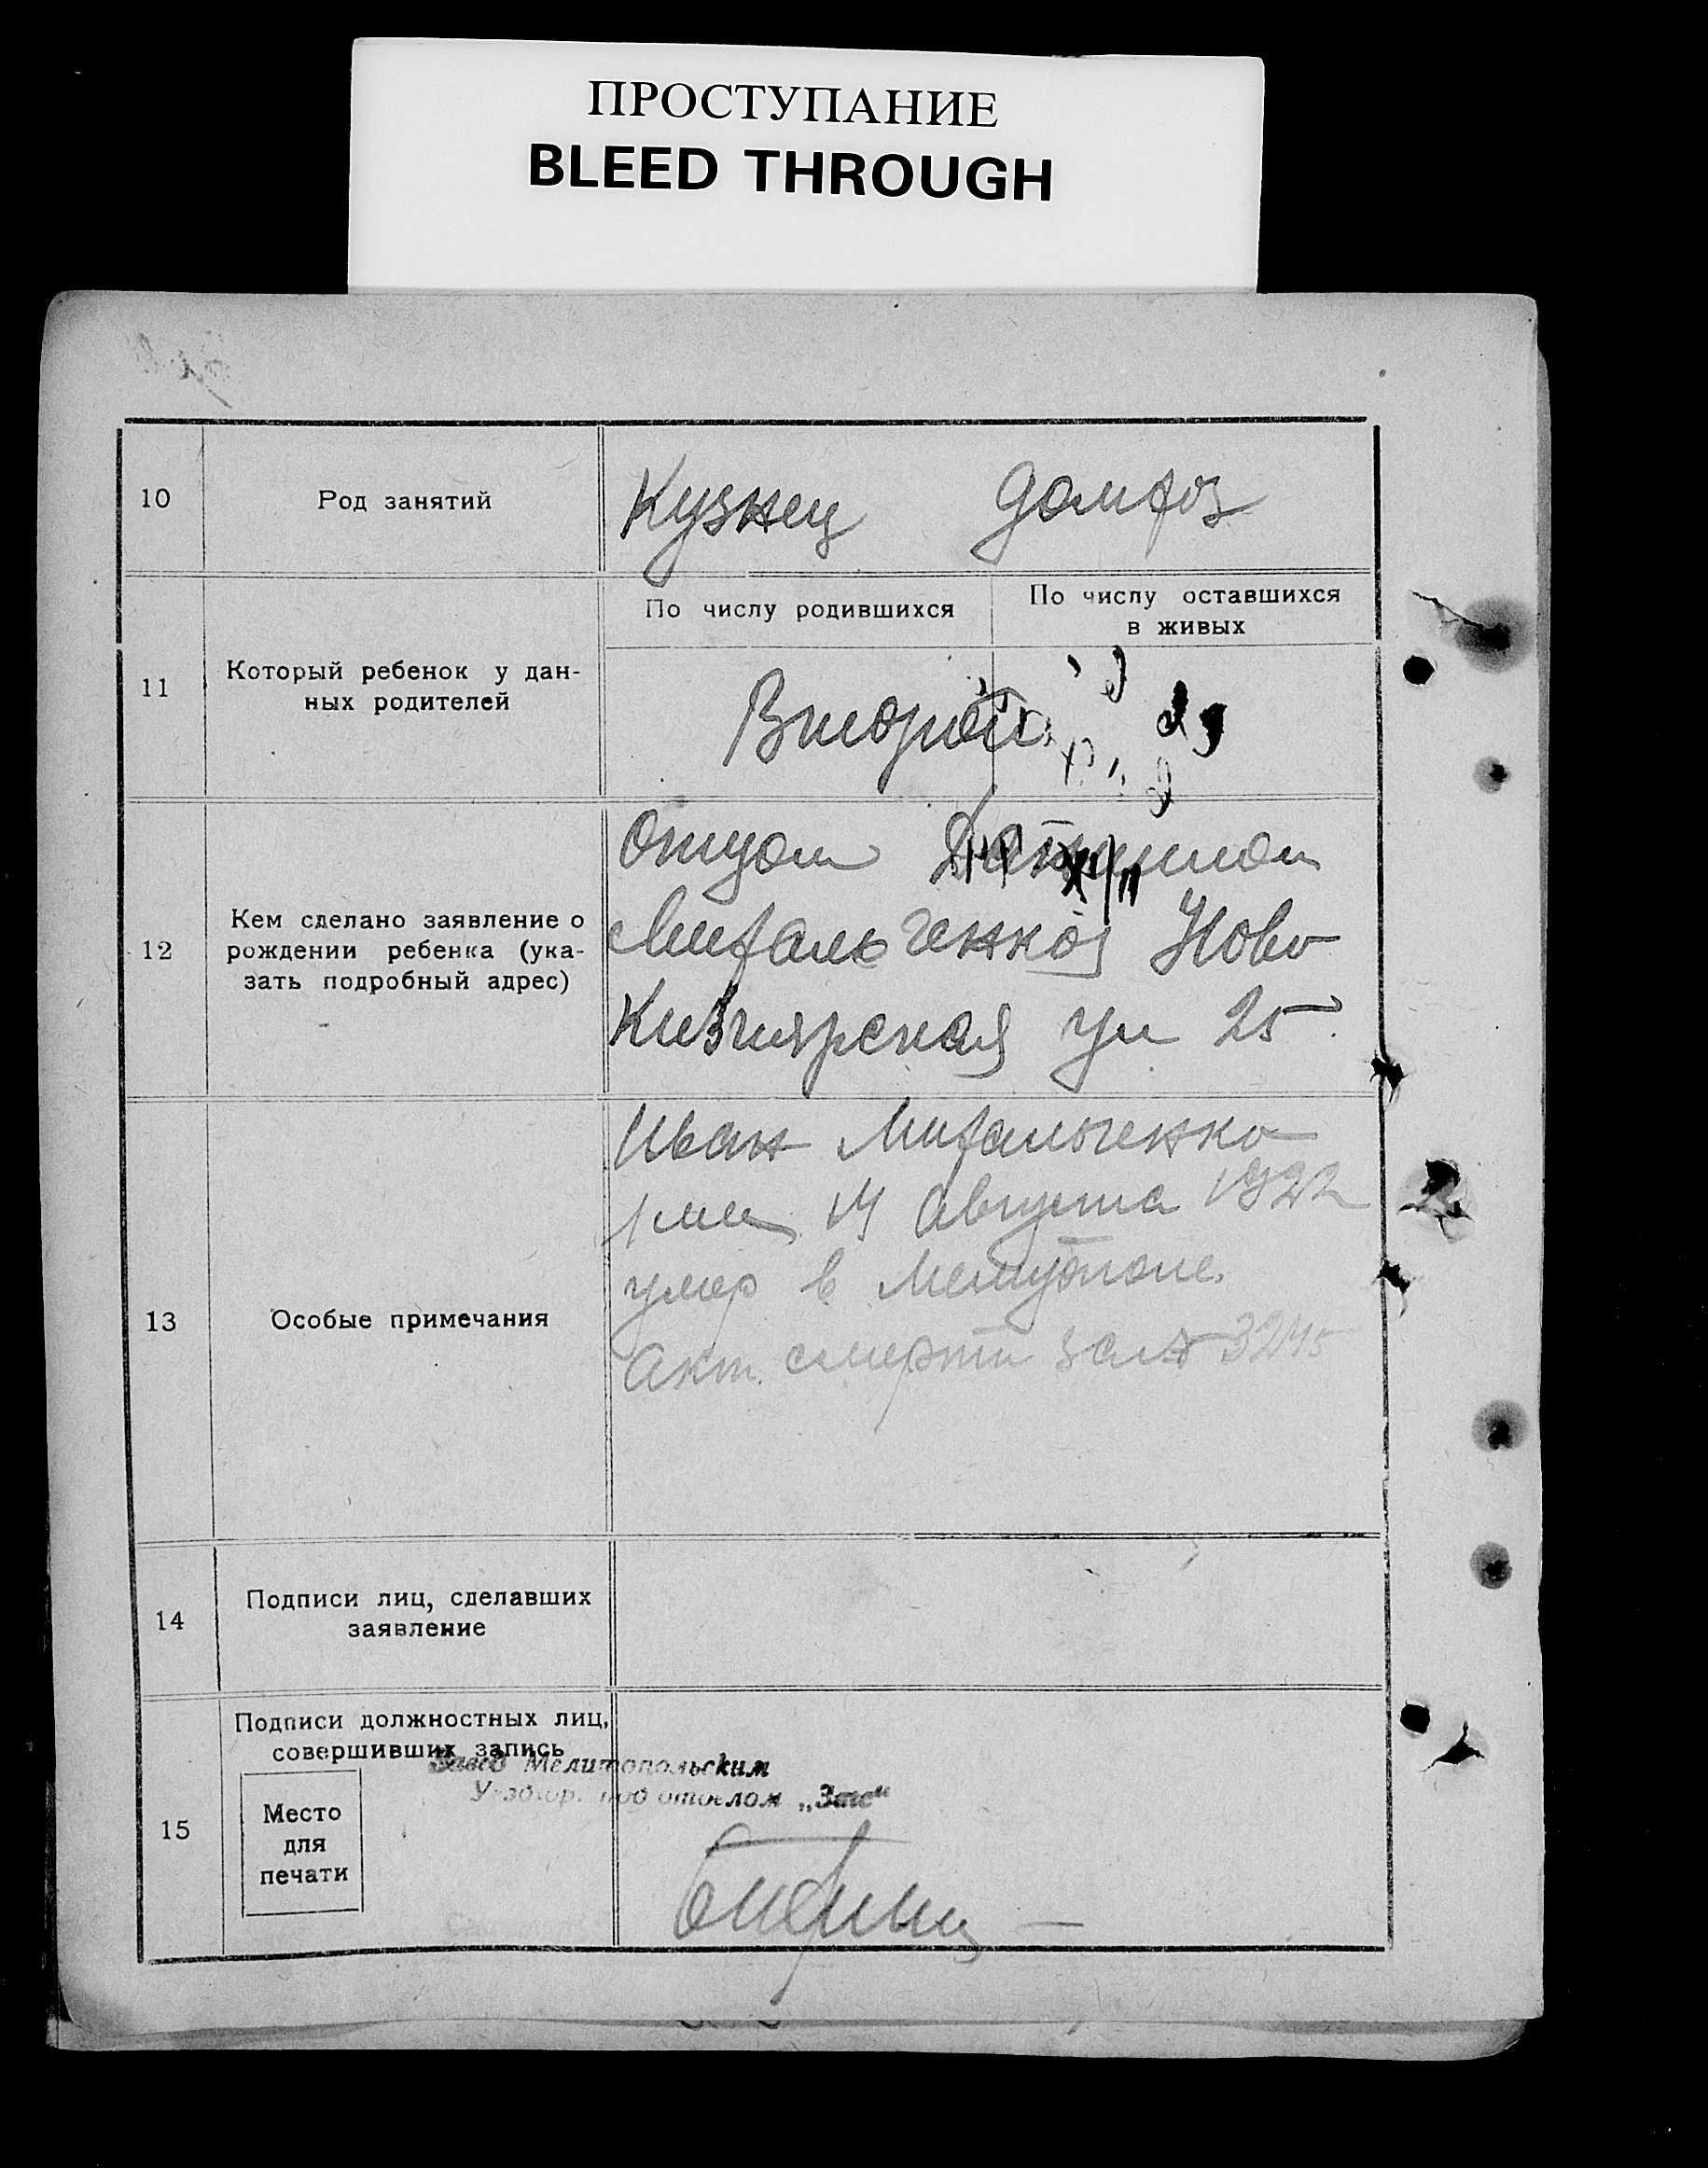 ПРОСТУПАНИЕ
BLEED THROUGH
10
Род занятий
Кузнец домхоз
11
Который ребенок у дан-
ных родителей
По числу родившихся
По числу оставшихся
в живых
Второй
12
Кем сделано заявление о
рождении ребенка (ука-
зать подробный адрес)
Отцом
Ново
Кизиярская ул 25
13
Особые примечания
Иван Михальченко
14 августа 1922
умер в Мелитополе.
Акт смерти за № 3245
14
Подписи лиц, сделавших
заявление
15
Подписи должностных лиц,
совершивших запись
Место
для
печати
Завед Мелитопольским
под отделом „Загс“